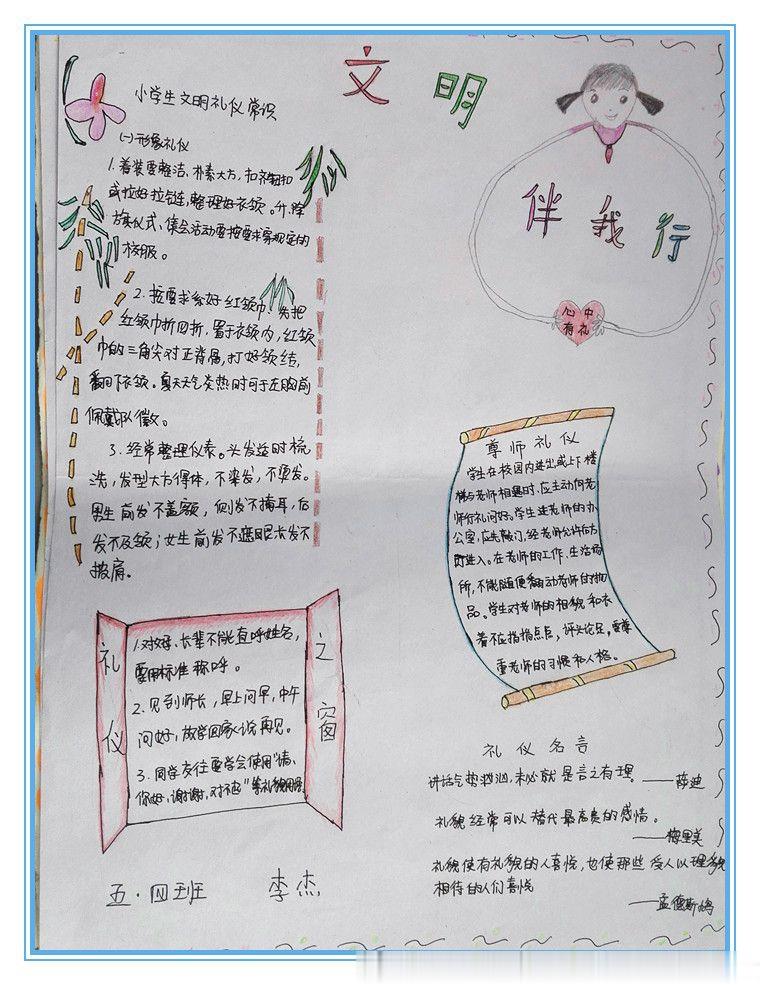 文明
伴我行
心中
有礼
小学生文明礼仪常识
(一)形象礼仪
1.着装要整洁、朴素大方,扣齐钮扣
或拉好拉链,整理好衣领。升、降
旗仪式、集会活动要按要求穿规定的
校服。
2.按要求系好红领巾、先把
红领巾折四折,置于衣领内,红领
巾的三角尖对正背居,打好领结,
翻下衣领。夏天天气炎热时可于左胸前
佩戴队徽。
3.经常整理仪表。头发适时梳
洗,发型大方得体,不染发,不烫发。
男生前发不盖额,侧发不掩耳,后
发不及领;女生前发不遮眼长发不
披肩。
尊师礼仪
学生在校园内进出或上下楼
梯与老师相遇时,应主动向老
师行礼问好。学生进老师的办
公室,应先敲门,经老师允许后方
可进入。在老师的工作、生活场
所,不能随便翻动老师的物
品。学生对老师的相貌和衣
着不应指指点点,评头论足,要尊
重老师的习惯和人格。
礼仪
之窗
1.对长辈不能直呼姓名,
要用标准称呼。
2.见到师长,早上问早,中午
问好,放学回家说再见。
3.同学友往要学会使用"请、
你好、谢谢,对不起"等礼貌用语
礼仪名言
讲话气势汹汹,未必就是言之有理。——萨迪
礼貌经常可以替代最高贵的感情。
——梅里美
礼貌使有礼貌的人喜悦,也使那些受人以礼貌
相待的人们喜悦
——孟德斯鸠
五·四班 李杰